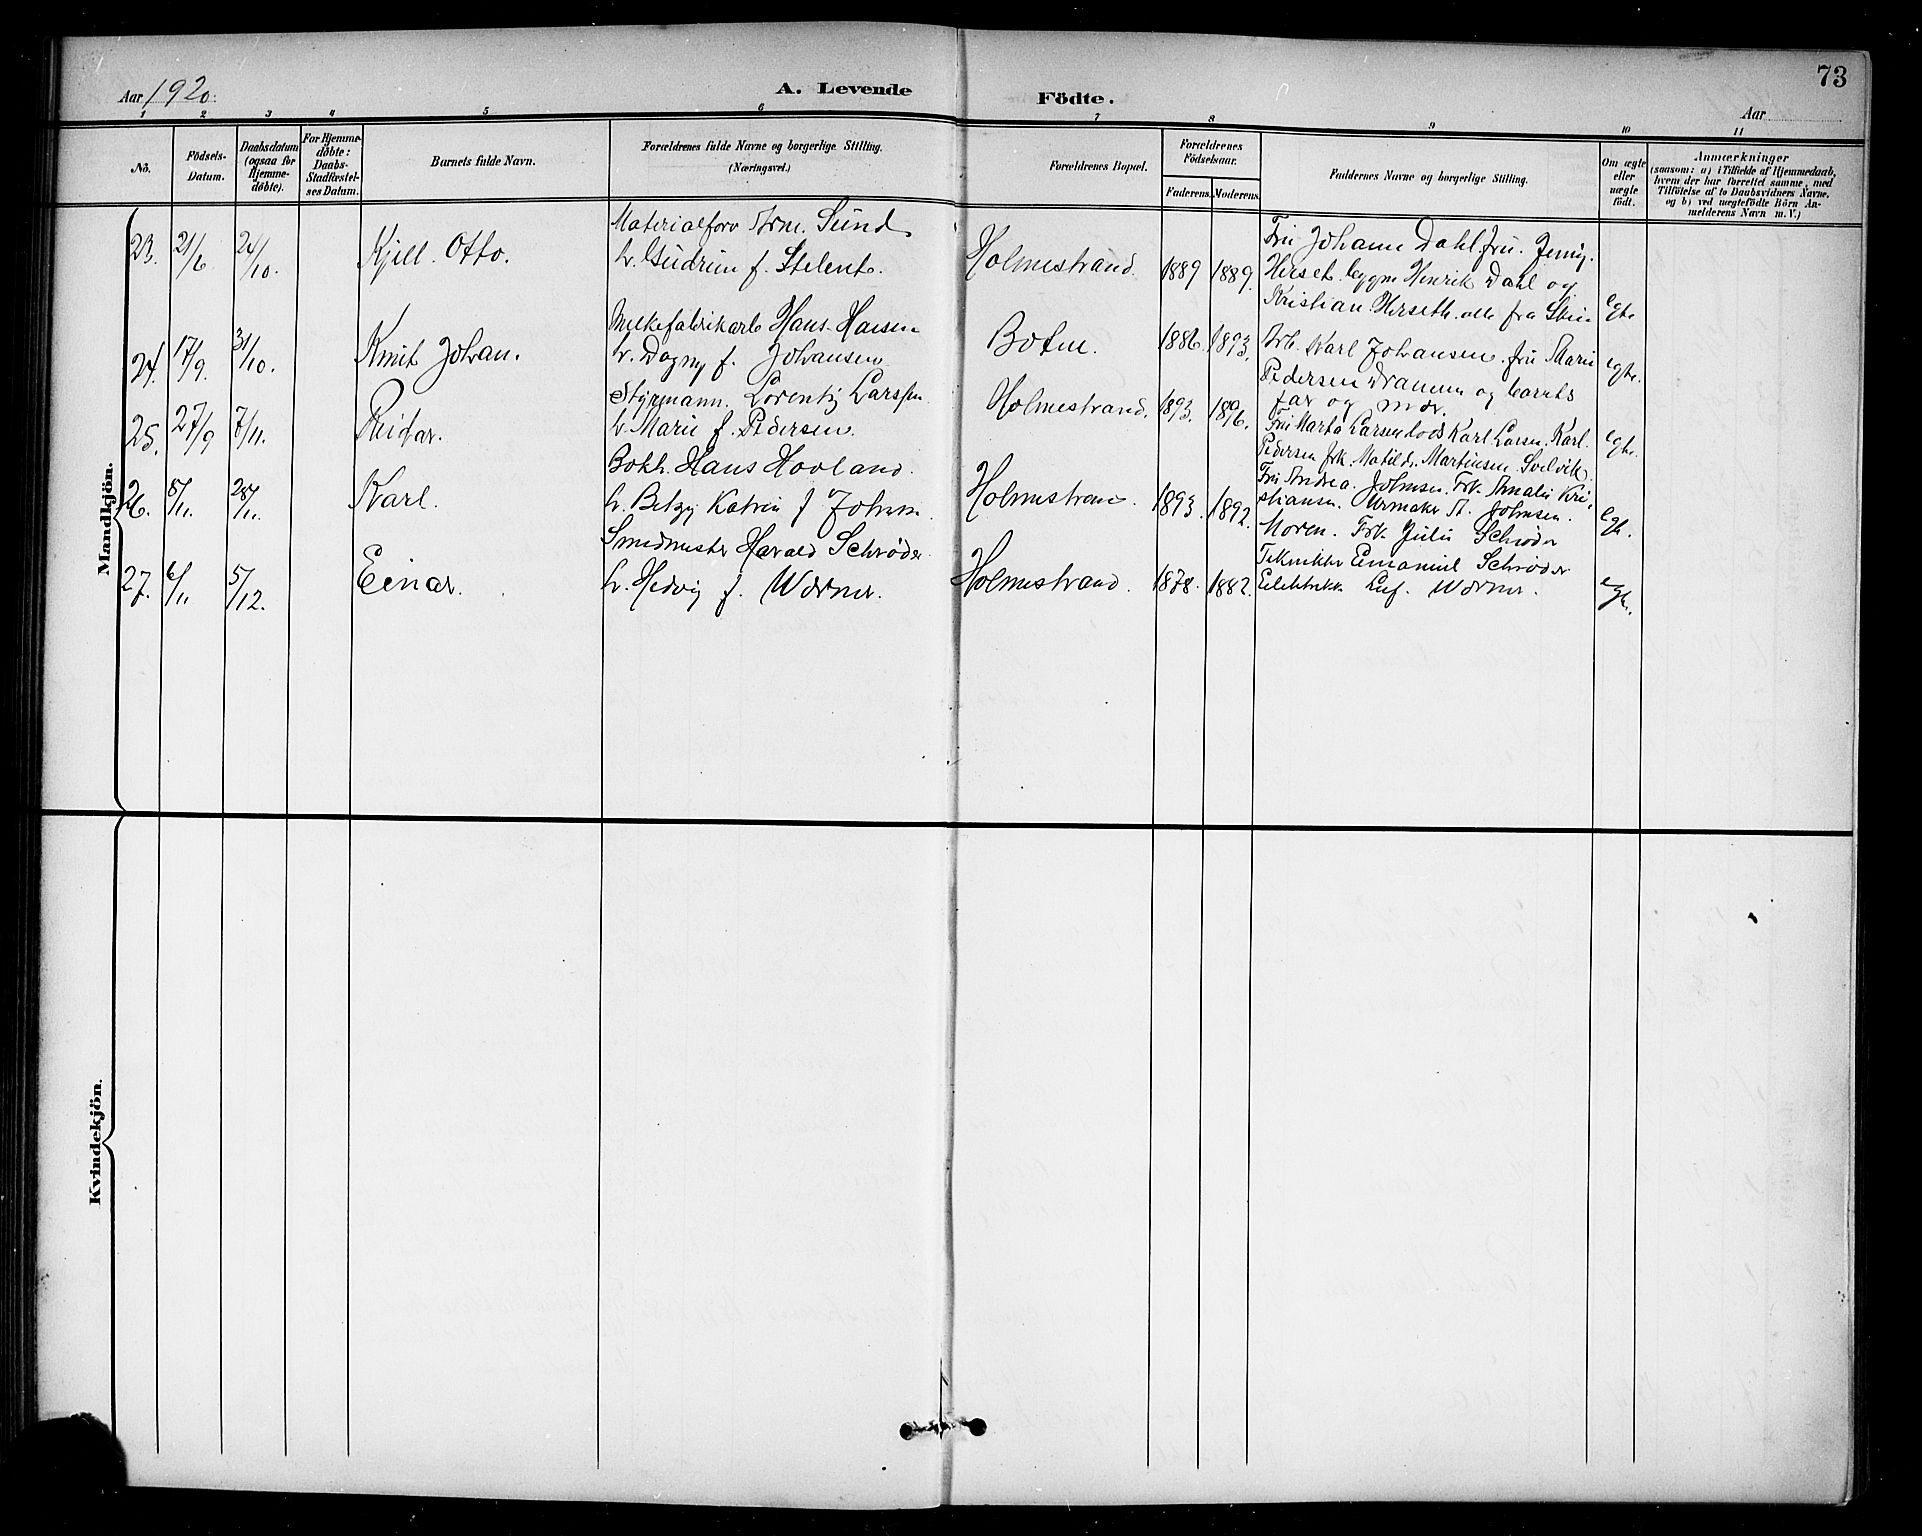 Aar 1920. A. Levende Födte. Aar 73
1 2 3 4 5 6 7 8 9 10 11
No. Födsels-Datum. Daabsdatum (ogsaa for Hjemmedøbte). For Hjemmedøbte: Daabs-Stadfæstelses Datum. Barnets fulde Navn. Forældrenes fulde Navne og borgerlige Stilling. (Næringsvei.) Forældrenes Bopæl. Forældrenes Födselsaar. Faderens. Moderens. Faddernes Navne og borgerlige Stilling. Om ægte eller uægte födt. Anmærkninger
(saasom: a) i Tilfælde af Hjemmedaab,
hvem der har forrettet samme, med
Tilföielse af to Daabsvidners Navne,
og b) ved uægtefödte Börn An-
melderens Navn m. V.)
Mandkjön.
23. 21/6 24/10. Kjell Otto. Materialforv Arne Sund
h. Gudrun f. Holmestrand. 1889 1889.
Fru Johanne Dahl, fru Jenny
Henrik Dahl og
Kristian Herseth alle fra
egte
24. 17/9. 31/10. Knut Johan. Melkefabrikarb Hans Hansen
h. Dagny f. Johansen Botne. 1886. 1893.
Arb. Karl Johansen. fru Marie
Pedersen Drammen og barnets
far og mor.
egte.
25. 27/9 7/11. Reidar. Styrmann. Lorentz Larssen
h. Marie f. Pedersen. Holmestrand. 1893. 1896.
Fru Marta Larsen Lods Karl Larsen. Karl
Pedersen frk. Matilde Martinsen Svelvik
egte.
26. 5/11 28/11. Karl. Bokh. Hans Hovland.
h. Betzy Katrin f Johnsen. Holmestrand. 1893. 1892.
Fru Andrea Johnsen. Frk Amalie Kri-
stiansen. Urmaker A. Johnsen.
egte.
27. 6/11 5/12. Einar. Smedmester Harald Schrøder
h. Hedvig f. Wærner. Holmestrand. 1878. 1882.
Moren. Frk Julie Schrøder
Tekniker Emanuel Schrøder
Elektrik. Wærner.
egte.
Kvindekjön.